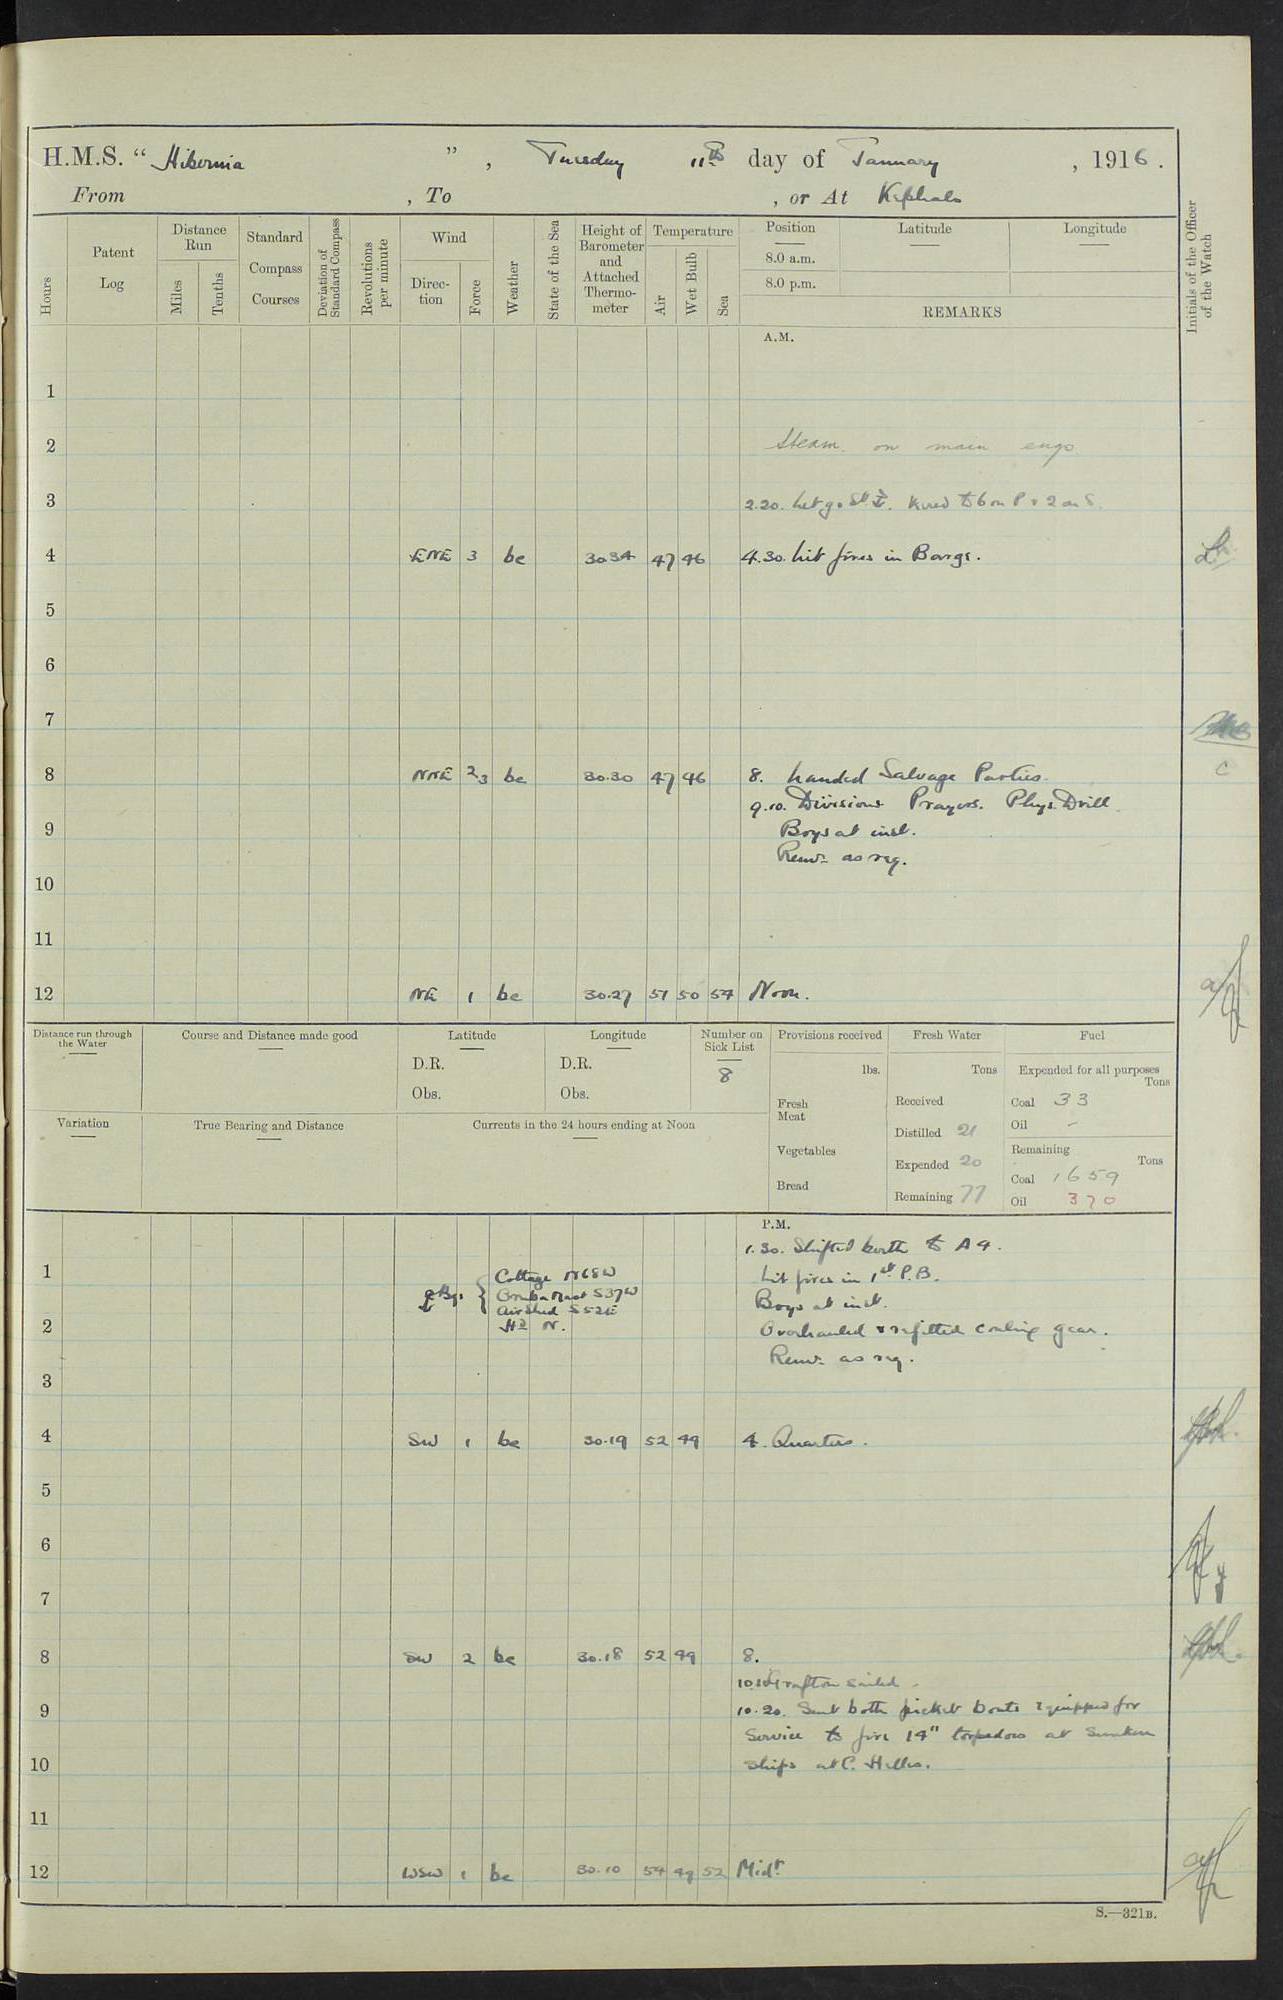 H.M.S. “ Hibernia ” , Tuesday 11th day of January , 1916 .
From , To , or At Kephalo
Hours
Patent Log
Distance Run
Miles
Tenths
Standard Compass Courses
Deviation of Standard Compass
Revolutions per minute
Wind
Direc-tion
Force
Weather
State of the Sea
Height of Barometer and Attached Thermo-meter
Temperature
Air
Wet Bulb
Sea
Position Latitude Longitude
8.0 a.m.
8.0 p.m.
REMARKS
Initials of the Officer of the Watch
A.M.
1
2 Steam on main engs
3 2.20. Let go Stb ⚓. Veered to 6 on P & 2 on S.
4 ENE 3 bc 30.34 47 46 4.30. Lit fires in Barge.
5
6
7
8 NNE 2/3 bc 30.30 47 46 8. Landed Salvage Parties.
9.10. Divisions Prayers. Phys. Drill
9 Boys at inst.
Remr as req.
10
11
12 NE 1 bc 30.27 51 50 54 Noon.
Distance run through the Water
Course and Distance made good
Latitude
D.R.
Obs.
Longitude
D.R.
Obs.
Number on Sick List
8
Provisions received
lbs.
Fresh Meat
Vegetables
Bread
Fresh Water
Tons
Received
Distilled 21
Expended 20
Remaining 77
Fuel
Expended for all purposes
Tons
Coal 33
Oil -
Remaining
Tons
Coal 1659
Oil 370
Variation
True Bearing and Distance
Currents in the 24 hours ending at Noon
P.M.
1.30. Shifted berth to A4.
1 Cottage N68W Lit fires in 1st P.B.
⚓ Bgs { Mast S37W Boys at inst.
Air Shed S52E
2 Hd N. Overhauled & refitted coaling gear.
Remr as req.
3
4 SW 1 bc 30.19 52 49 4. Quarters.
5
6
7
8 SW 2 bc 30.18 52 49 8.
Grafton sailed.
9 10.20. Sent both picket boats equipped for
Service to fire 14" torpedoes at Sunken
10 Ships at C. Helles.
11
12 WSW 1 bc 30.10 54 49 52 Midt
S.—321B.